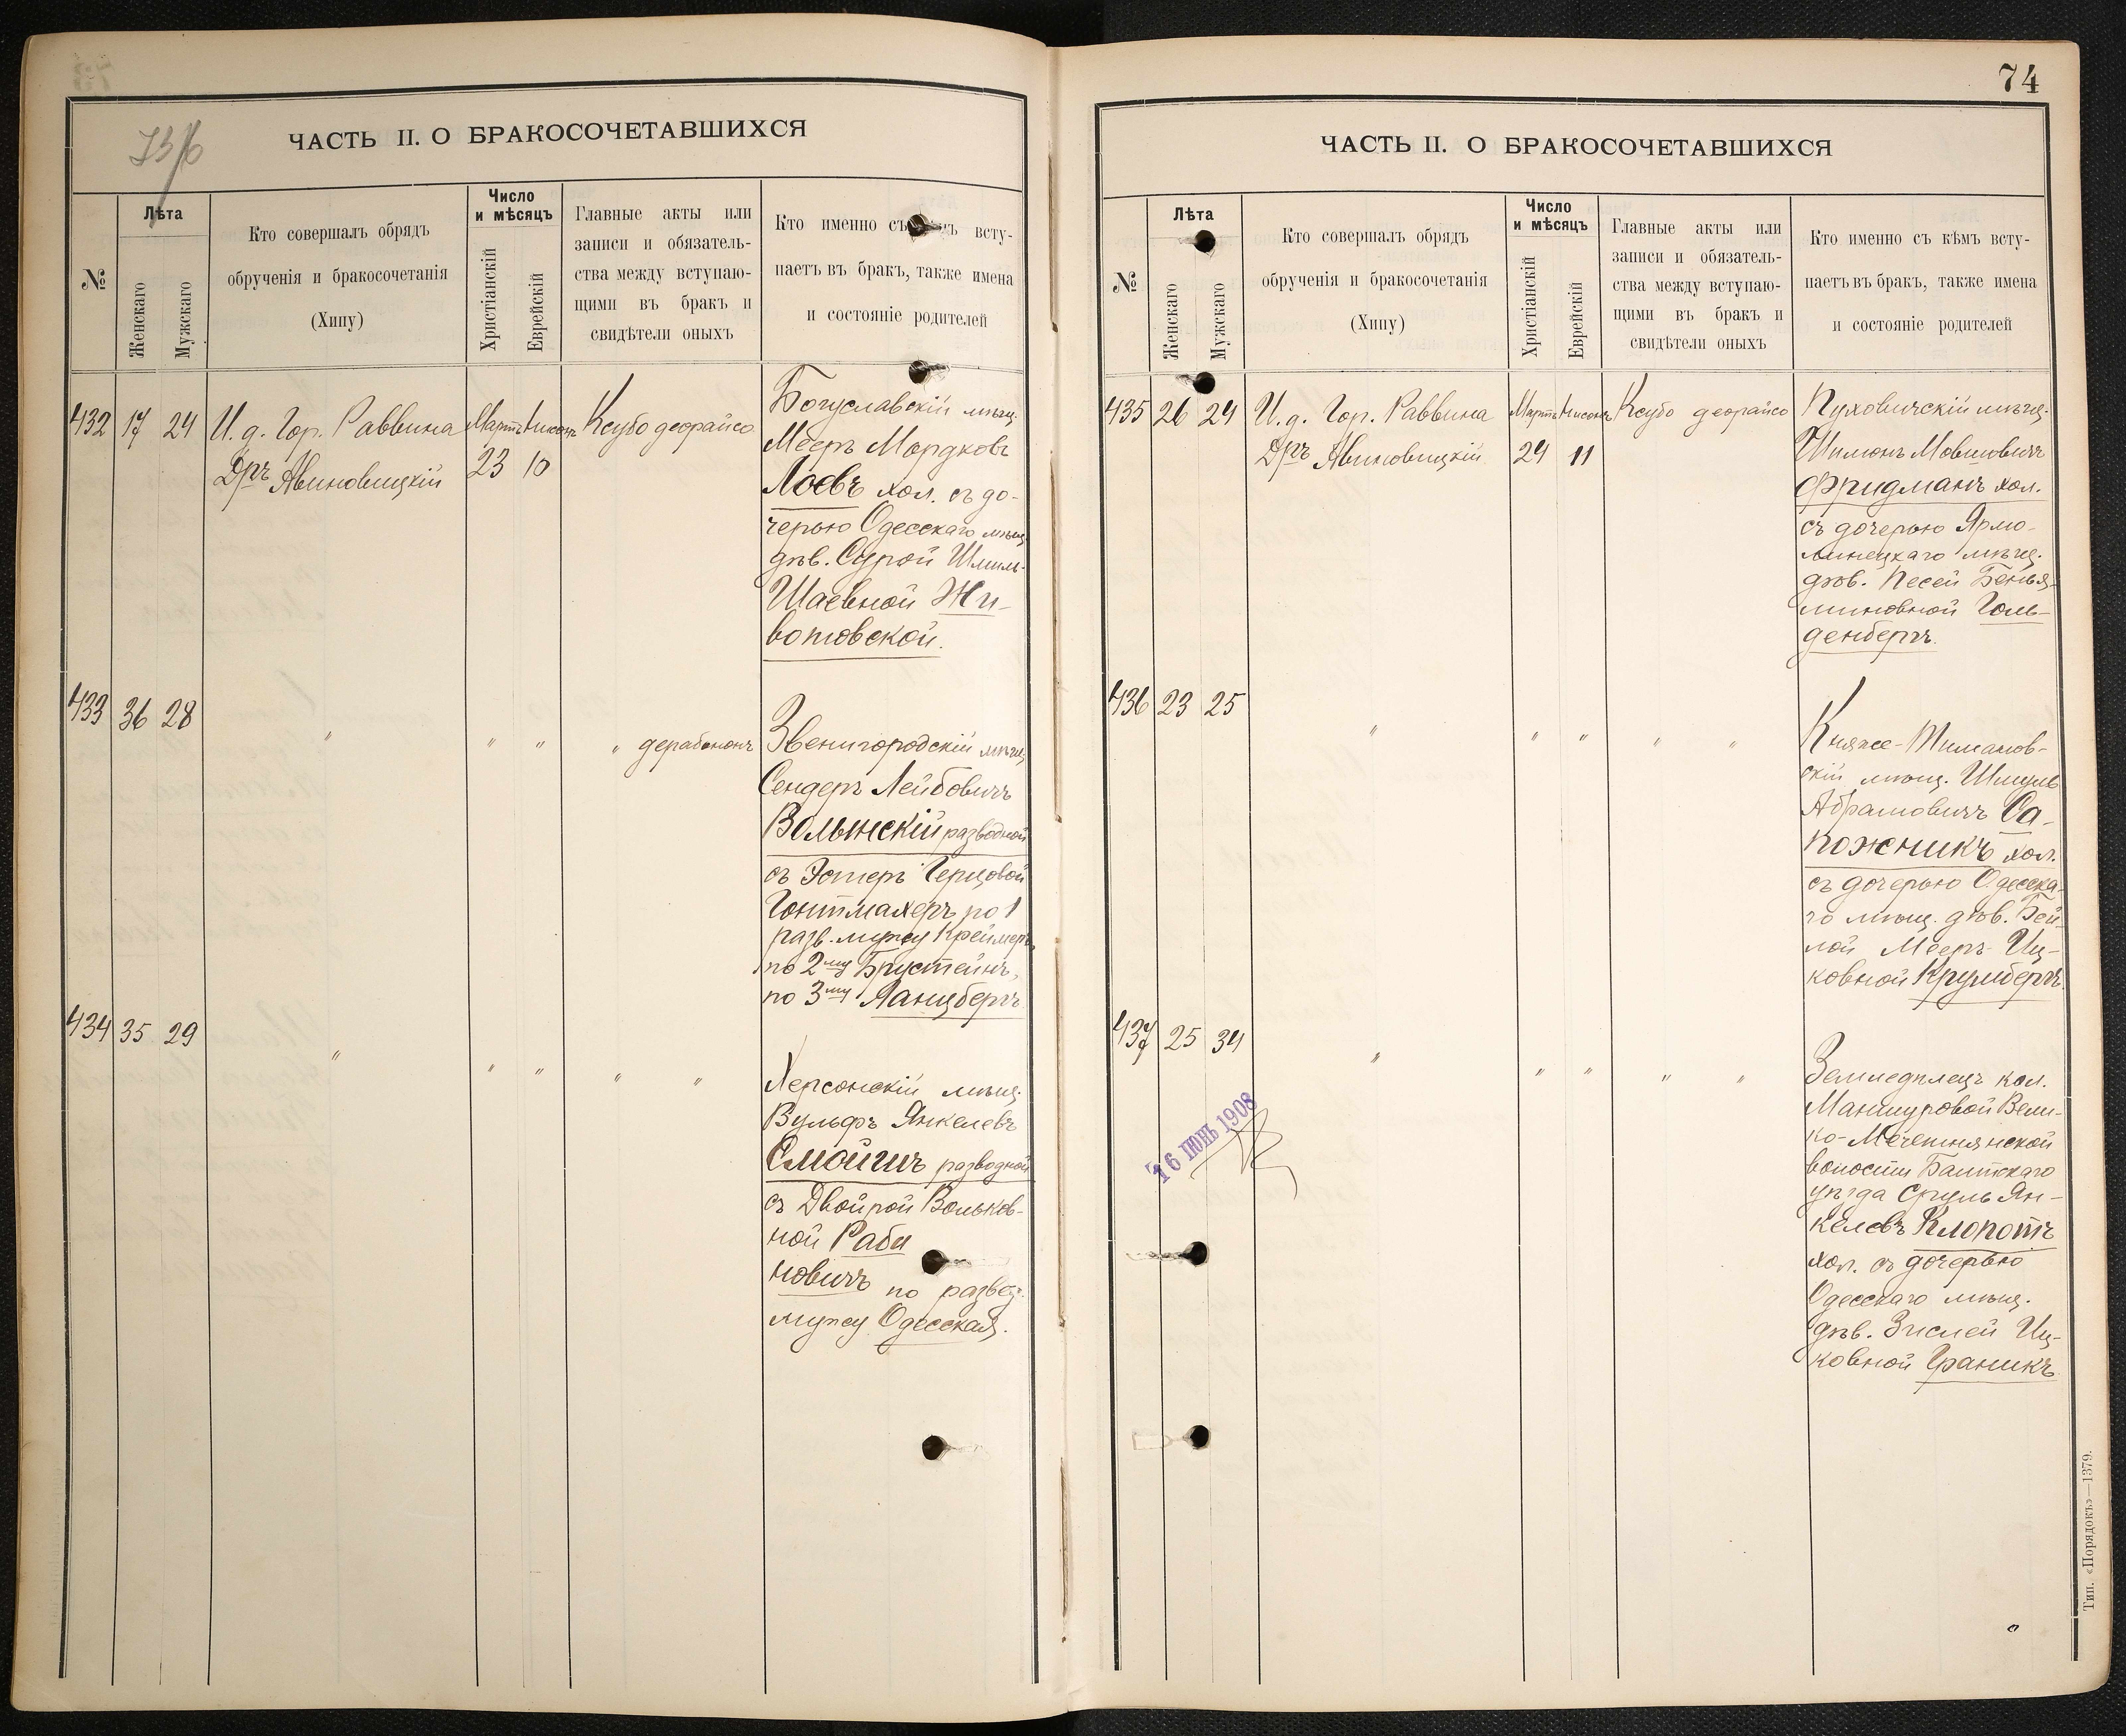 73/б
ЧАСТЬ II. О БРАКОСОЧЕТАВШИХСЯ
№
Лѣта
Женскаго
Мужскаго
Кто совершалъ обрядъ
обрученія и бракосочетанія
(Хипу)
Число
и мѣсяцъ
Христіанскій
Еврейскій
Главные акты или
записи и обязатель-
ства между вступаю-
щими въ бракъ и
свидѣтели оныхъ
Кто именно съ всту-
паетъ въ бракъ, также имена
и состояніе родителей
432 17 24 И. д. Гор. Раввина Мартъ Нисонъ Ксубо деорайсо
Дръ Авиновицкій 23 10
Богуславскій мѣщ.
Мееръ Мордковъ
Лоевъ хол. съ до-
черью Одесскаго мѣщ.
дѣв. Сурой Шмиль-
Шаевной Жи-
вотовской.
433 36 28 " " " " дерабононъ
Звенигородскій мѣщ.
Сендеръ Лейбовичъ
Волынскій разводной
съ Эстеръ Герцовой
Гонтмахеръ по 1
разв. мужу Креймеръ
по 2му Брустейнъ,
по 3му Ланцбергъ
434 35 29 " " " " "
Херсонскій мѣщ.
Вульфъ Янкелевъ
Смойгинъ разводной
съ Двойрой Вольков-
ной Раби
новичъ по развед.
мужу Одесская.
74
ЧАСТЬ II. О БРАКОСОЧЕТАВШИХСЯ
№
Лѣта
Женскаго
Мужскаго
Кто совершалъ обрядъ
обрученія и бракосочетанія
(Хипу)
Число
и мѣсяцъ
Христіанскій
Еврейскій
Главные акты или
записи и обязатель-
ства между вступаю-
щими въ бракъ и
свидѣтели оныхъ
Кто именно съ кѣмъ всту-
паетъ въ бракъ, также имена
и состояніе родителей
435 26 24 И. д. Гор. Раввина Мартъ Нисонъ Ксубо деорайсо
Дръ Авиновицкій 24 11
Пуховичскій мѣщ.
Шимонъ Мовшовичъ
Фридманъ хол.
съ дочерью Ярмо-
линецкаго мѣщ.
дѣв. Песей Бенья-
миновной Голь-
денбергъ.
436 23 25 " " " " "
Княже-Тимановскій
скій мѣщ. Шмуль
Абрамовичъ Са-
пожникъ хол.
съ дочерью Одесска-
го мѣщ. дѣв. Бей-
лой Мееръ-Иц-
ковной Крумбергъ.
437 25 34 " " " " "
Земледѣлецъ кол.
Манжуровой Вели-
ко-Мечетнянской
волости Балтскаго
уѣзда Сруль Ян-
келевъ Клопотъ
хол. съ дочерью
Одесскаго мѣщ.
дѣв. Зислей Иц-
ковной Граникъ.
16 ІЮНЬ 1908
Тип. «Порядокъ»—1379.